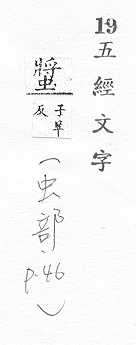 19 五經文字
螿 子羊反
(虫部, p.46)